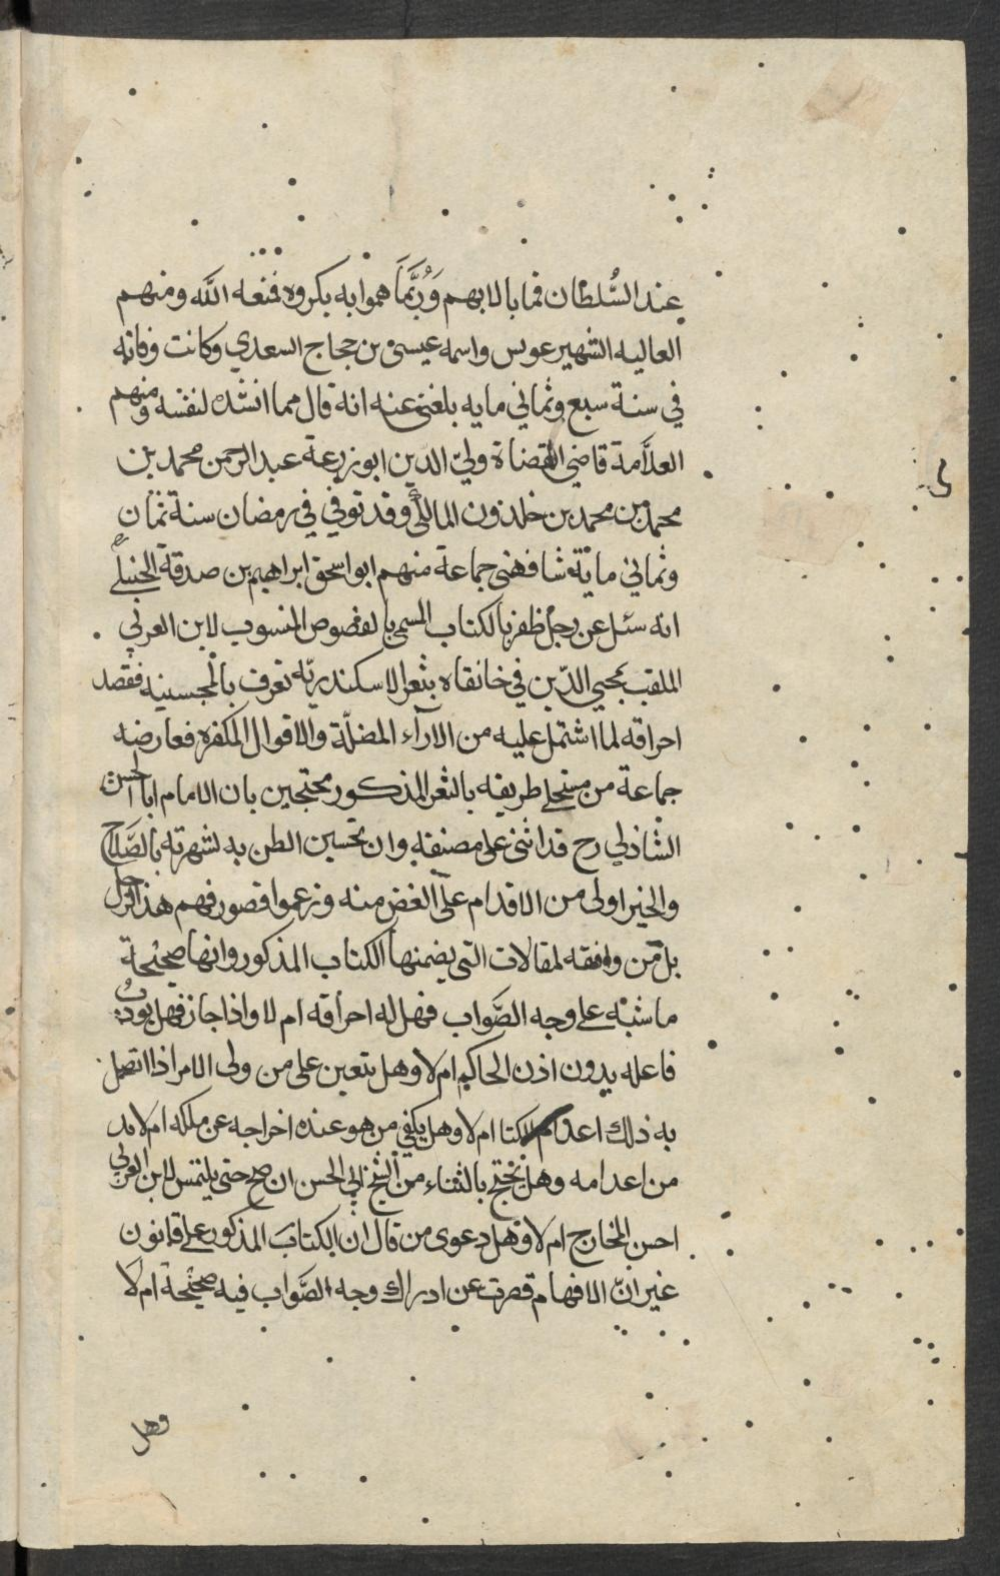 عند السُّلطان فما بالا بهم وَرُبَّمَا هموا به بكروه فمنعه الله ومنهم
العاليه الشهير عويس واسمه عيسى بن حجاج السعدي وكانت وفاته
في سنة سبع وثماني مايه بلغني عنه انه قال مما انشده لنفسه ومنهم
العلاَّمة قاضي القضاة ولي الدين ابو زرعة عبد الرحمن محمد بن
محمد بن محمد بن خلدون المالكي وقد توفي في رمضان سنة ثمان
وثماني ماية شافهني جماعة منهم ابو اسحق ابراهيم بن صدقة الحنبلي
انه سئل عن رجل ظفر بالكتاب المسمى بالفصوص المنسوب لابن العربي
الملقب بمحيي الدّين في خانقاه بثغر الاسكندريّة تعرف بالمجسينيه فقصد
احراقه لما اشتمل عليه من الارآء المضلّة والاقوال المكفره فعارضه
جماعة من منتحلي طريقه بالثغر المذكور محتجين بان الامام ابا الحسن
الشاذلي رح قد اثنى على مصنفه وان تحسين الظن به لشهرته بالصَّلاح
والخير اولى من الاقدام على الغض منه وزعموا قصور فهم هذا الرجل
بل من وافقه لمقالات التي يضمنها الكتاب المذكور وانها صحيحة
ماشية على وجه الصَّواب فهل له احراقه ام لا واذا جاز فهل يودب
فاعله بدون اذن الحاكم ام لا وهل يتعين على من ولى الامر اذا اتصل
به ذلك اعدام الكتا ام لا وهل يكفي من هو عنده اخراجه عن ملكه ام لا بد
من اعدامه وهل نحتج بالثناء من الشيخ ابي الحسن ان صح حتى يلتمس لابن العربي
احسن المخارج ام لا وهل دعوى من قال ان الكتاب المذكور على قانون
غير انّ الافهام قصرت عن ادراك وجه الصَّواب فيه صحيحة ام لا
وهل